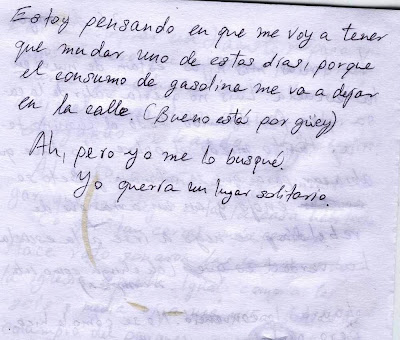 Estoy pensando en que me voy a tener
que mudar uno de estas días, porque
el consumo de gasolina me va a dejar
en la calle. (Bueno está por güey)
Ah, pero yo me lo busqué.
Yo quería un lugar solitario.